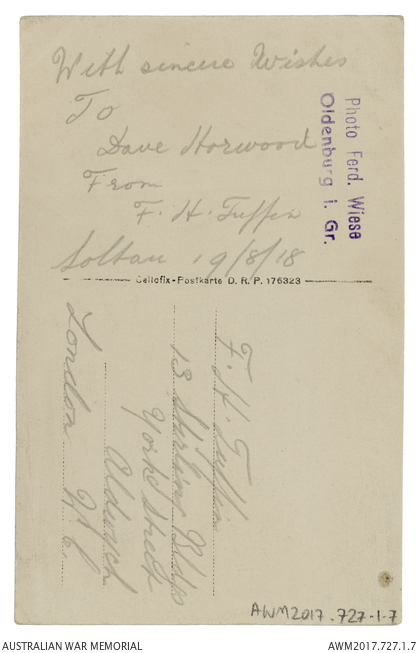 With sincere Wishes
To
Dave Horwood
From
F. H. Tuffin
Soltau 19/8/18
Photo Ferd. Wiese
Oldenburg i. Gr.
Cellofix-Postkarte D. R. P. 176323
F. H. Tuffin
13 Stirling Bldgs
York Street
Aldwych
London W.C.
AWM2017.727.1.7
AUSTRALIAN WAR MEMORIAL
AWM2017.727.1.7